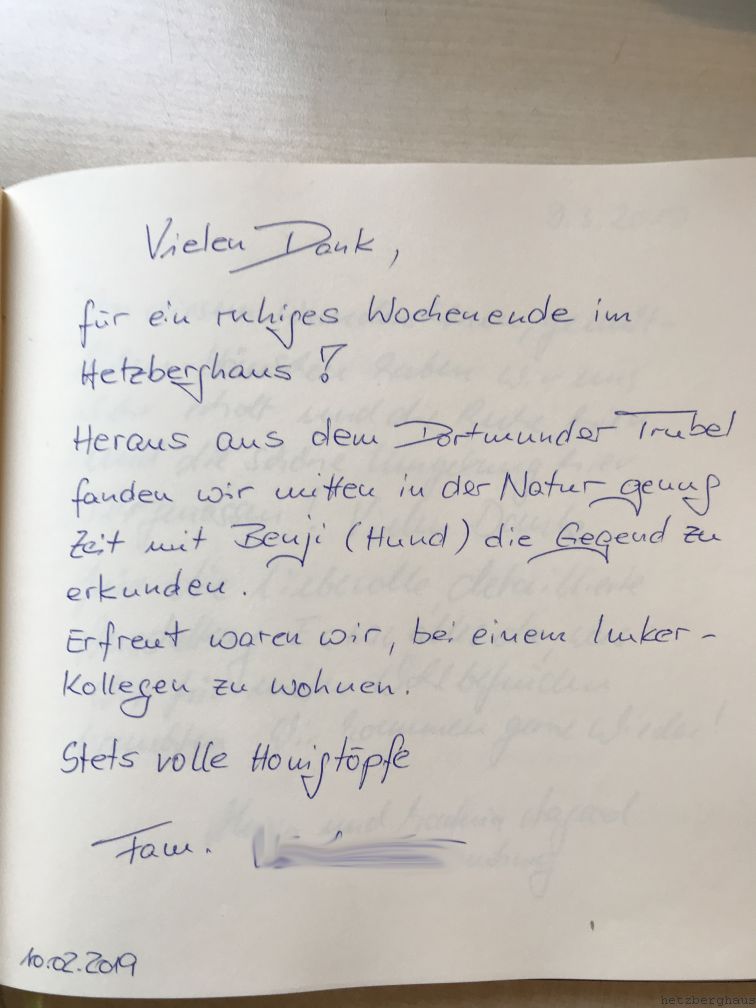 Vielen Dank,
für ein ruhiges Wochenende im
Hetzberghaus!
Heraus aus dem Dortmunder Trubel
fanden wir mitten in der Natur genug
Zeit mit Benji (Hund) die Gegend zu
erkunden.
Erfreut waren wir, bei einem Imker-
Kollegen zu wohnen.
Stets volle Honigtöpfe
Fam.
10.02.2019
hetzberghaus